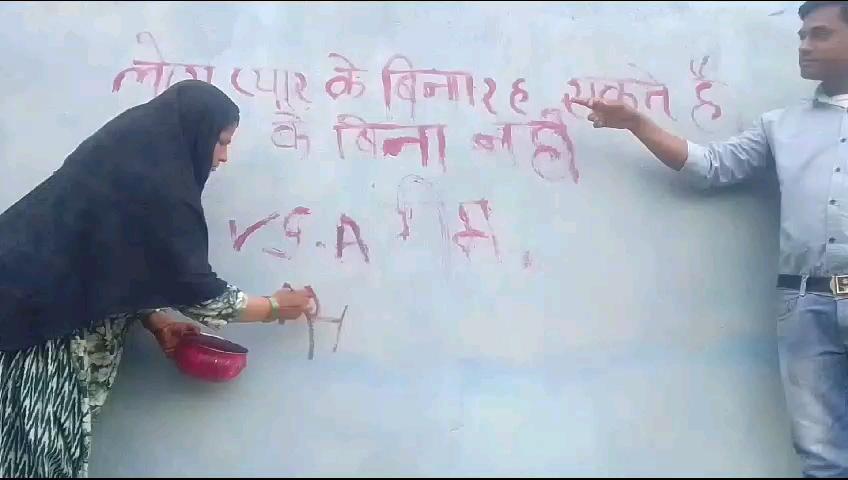 लोग प्यार के बिना रह सकते है
के बिना नही
V.S.A